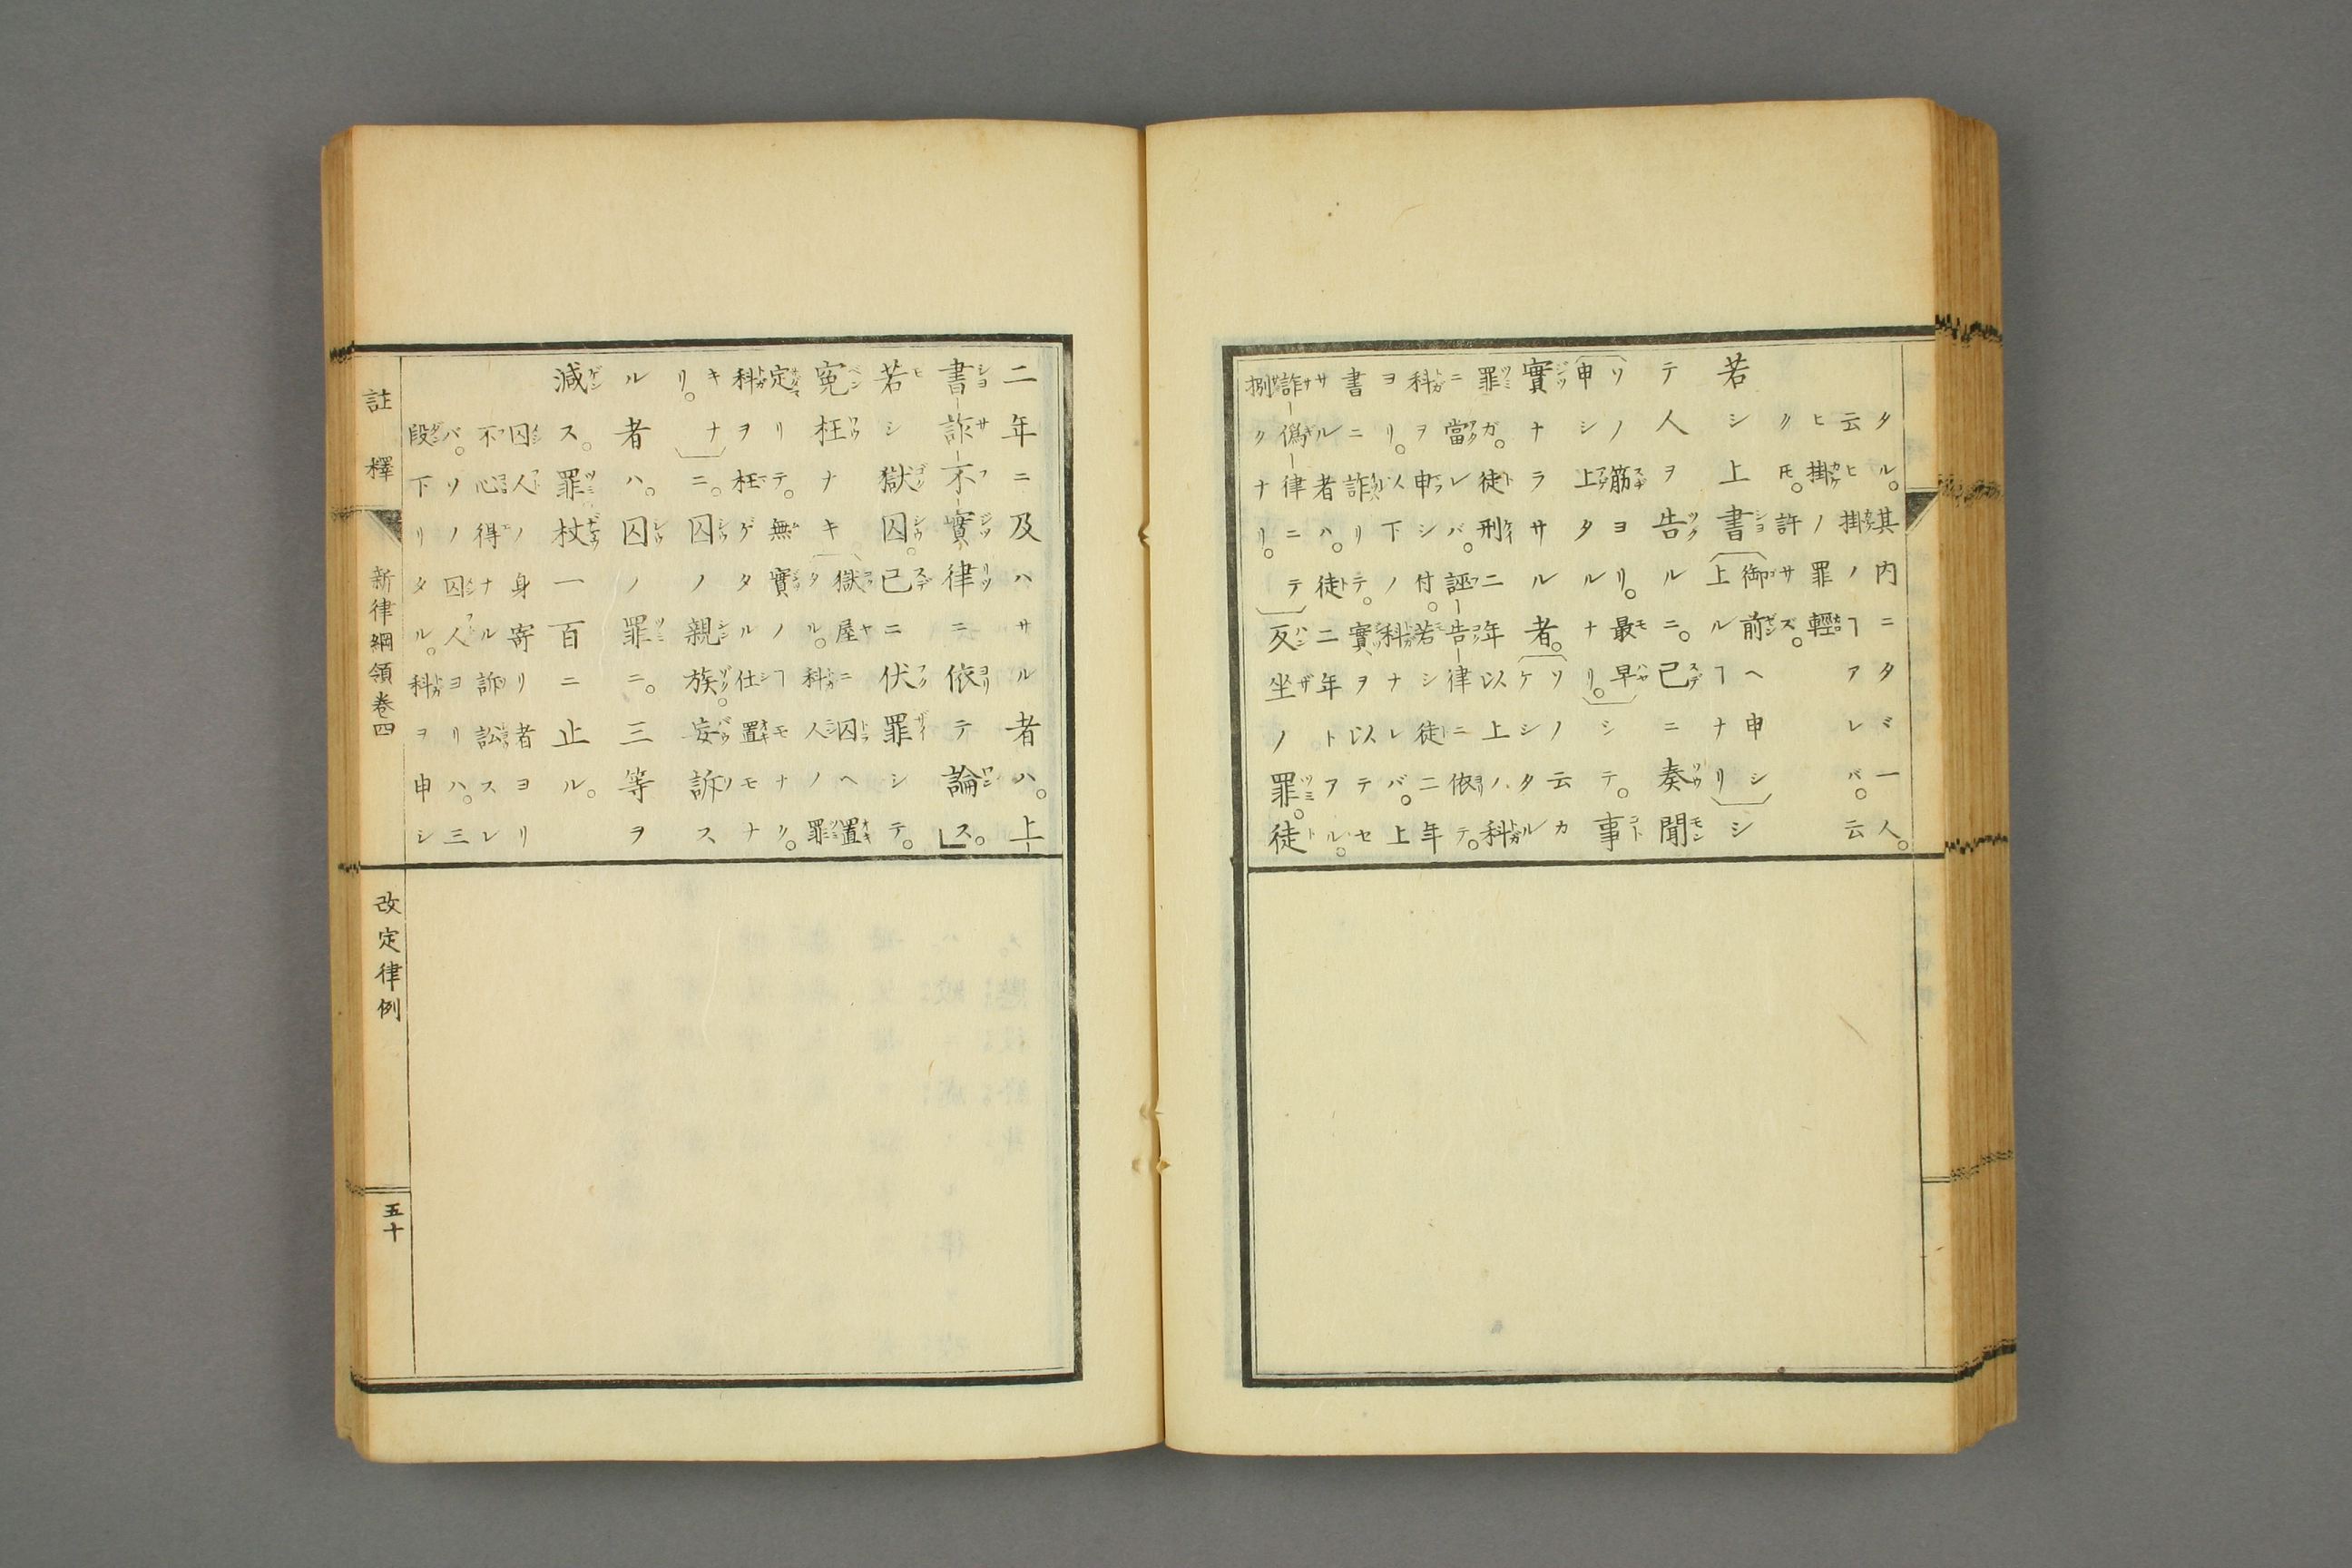 タル。其内ニタヾ一人。
云ヒ掛ノヿアレバ。云
ヒ掛ノ罪輕
クトモ。許サズ。
若シ上書
御前ヘ申シ
上ルヿナリ
シ
テ人ヲ告ルニ。已ニ奏聞
ソノ筋ヨリ。最早
申シ上タルナリ。
シテ。事
實ナラサル者。
ソノ云カ
ケシタル
罪ガ。徒刑二年以上ノ科
ニ當レバ。誣告律ニ依テ。
科ヲ申シ付。若シ徒二年
ヨリ。以下ノ科ナレバ。上
書ニ詐リテ。實ヲ以テセ
サル者ハ。徒二年トアル。
詐僞律ニテ
捌クナリ。
反坐ノ罪。徒
二年ニ及ハサル者ハ。上
書詐不實律ニ依テ論ス。
若シ獄囚。已ニ伏罪シテ。
寃枉ナキ
獄屋ニ囚ヘ置
タル。科人ノ罪
定リテ。無實ノヿモナク。
科ヲ枉ゲタル仕置モナ
キナ
リ。
ニ。囚ノ親族。妄訴ス
ル者ハ。囚ノ罪ニ。三等ヲ
減ス。罪杖一百ニ止ル。
囚人ノ身寄リ者ヨリ
不心得ナル訴訟スレ
バ。ソノ囚人ヨリハ。三
段下リタル。科ヲ申シ
註釋 新律綱領卷四 改定律例 五十